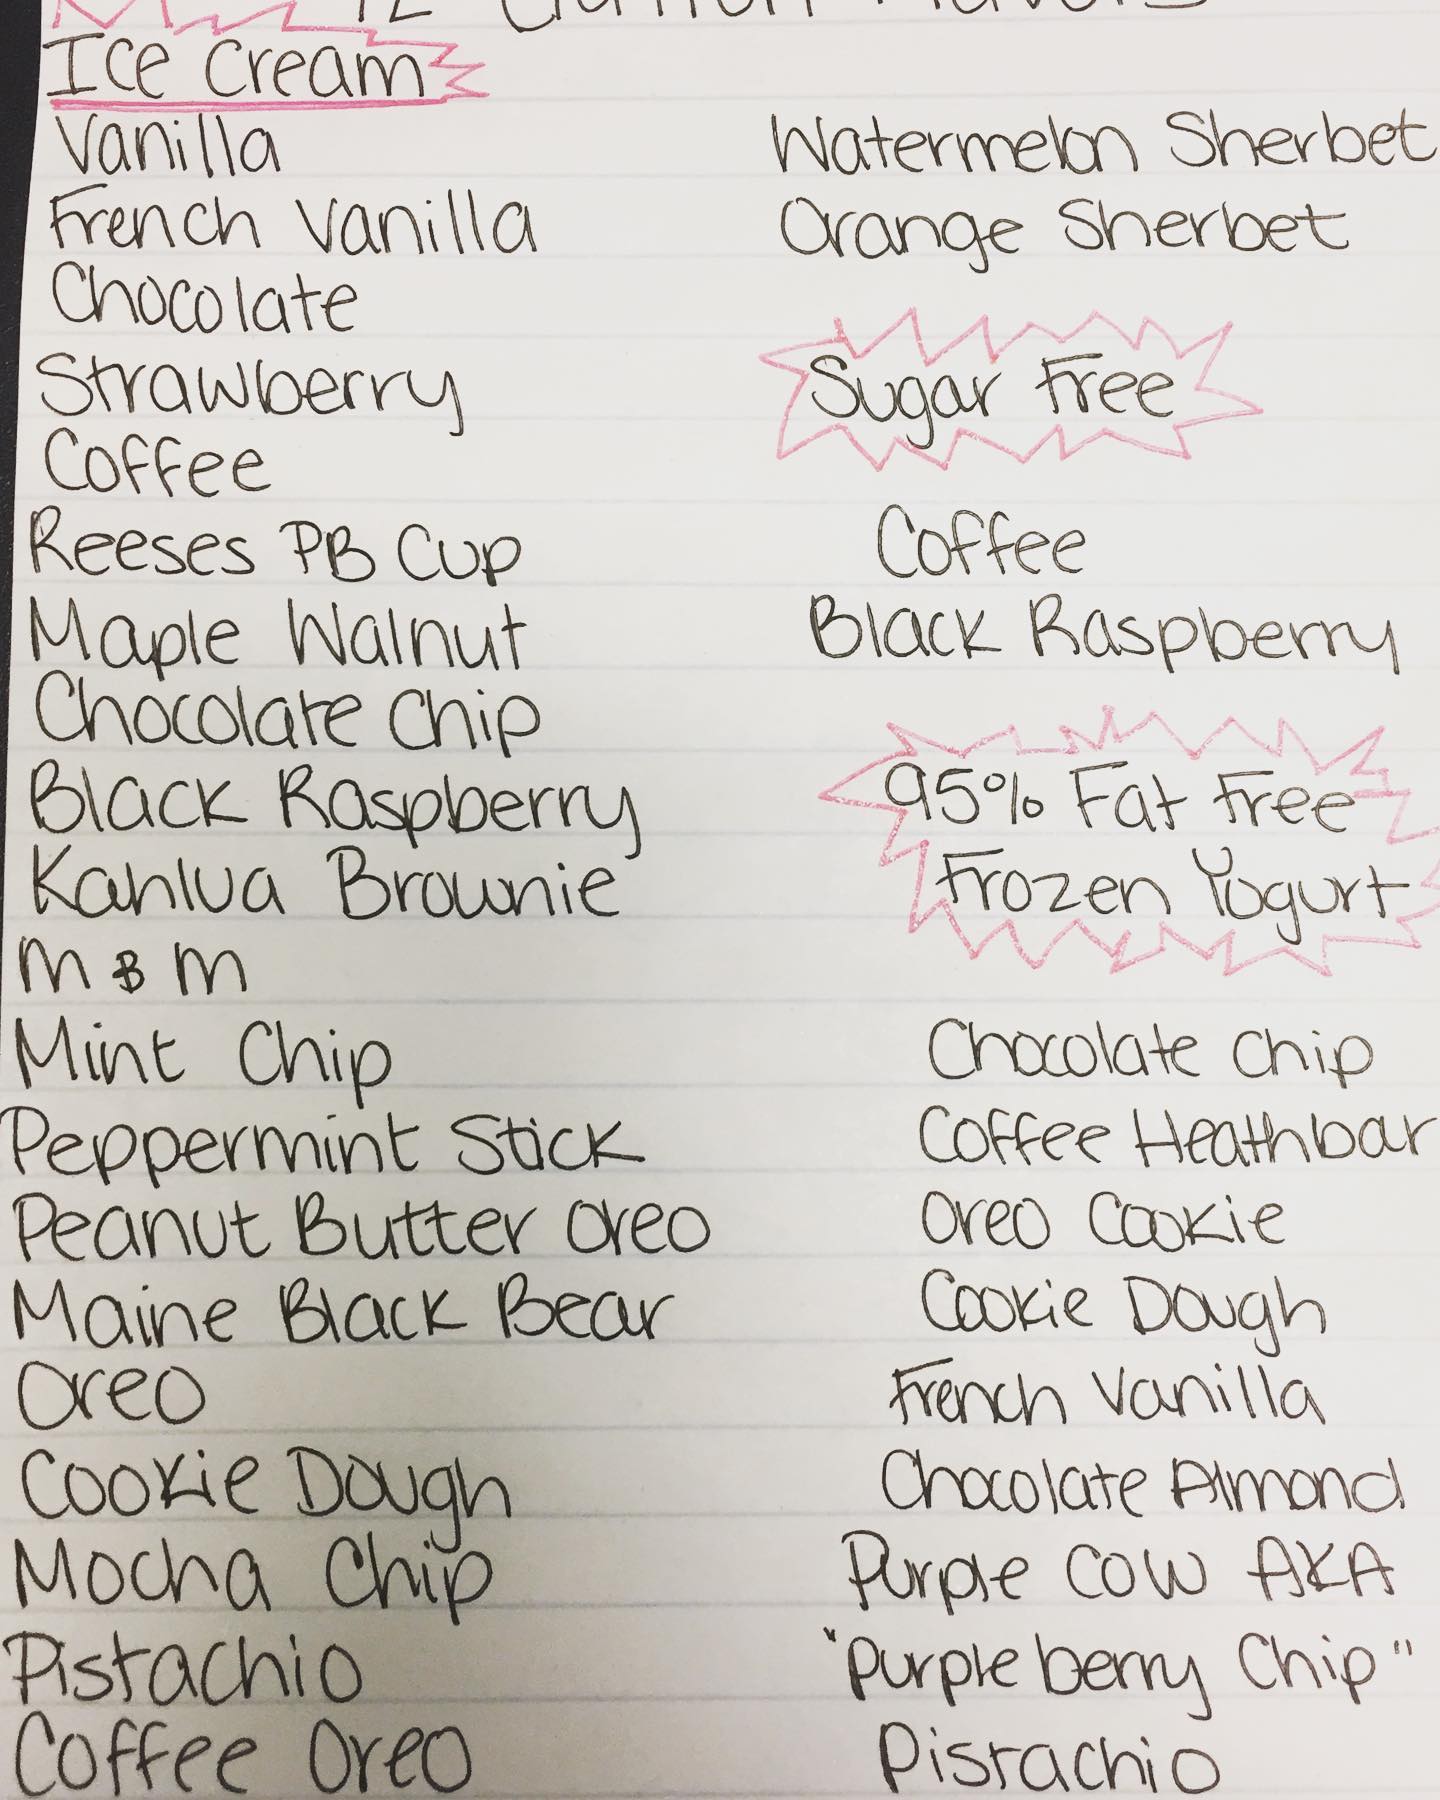 Ice Cream
Vanilla
French Vanilla
Chocolate
Strawberry
Coffee
Reeses PB Cup
Maple Walnut
Chocolate Chip
Black Raspberry
Kahlua Brownie
m & m
Mint Chip
Peppermint Stick
Peanut Butter Oreo
Maine Black Bear
Oreo
Cookie Dough
Mocha Chip
Pistachio
Coffee Oreo
Watermelon Sherbet
Orange Sherbet
Sugar Free
Coffee
Black Raspberry
95% Fat Free
Frozen Yogurt
Chocolate Chip
Coffee Heathbar
Oreo Cookie
Cookie Dough
French Vanilla
Chocolate Almond
Purple Cow AKA
"Purpleberry Chip"
Pistachio